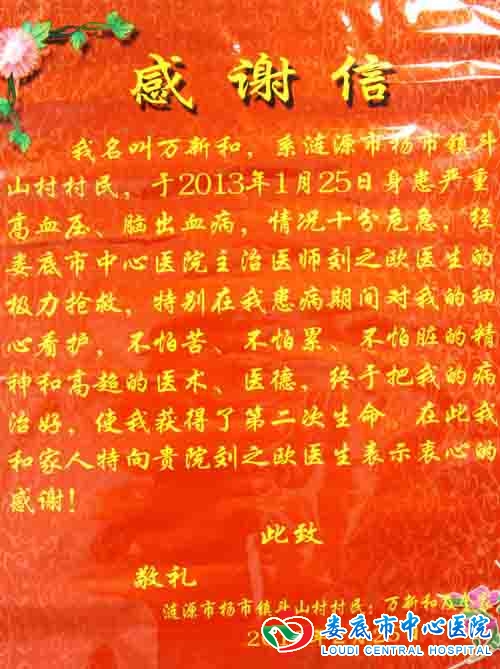 感谢信
我名叫万新和，系涟源市杨市镇斗
山村村民，于2013年1月25日身患严重
高血压、脑出血病，情况十分危急，经
娄底市中心医院主治医师刘之欧医生的
极力抢救，特别在我患病期间对我的细
心看护，不怕苦、不怕累、不怕脏的精
神和高超的医术、医德，终于把我的病
治好，使我获得了第二次生命。在此我
和家人特向贵院刘之欧医生表示衷心的
感谢！
此致
敬礼
涟源市杨市镇斗山村村民：万新和及
娄底市中心医院
LOUDI CENTRAL HOSPITAL